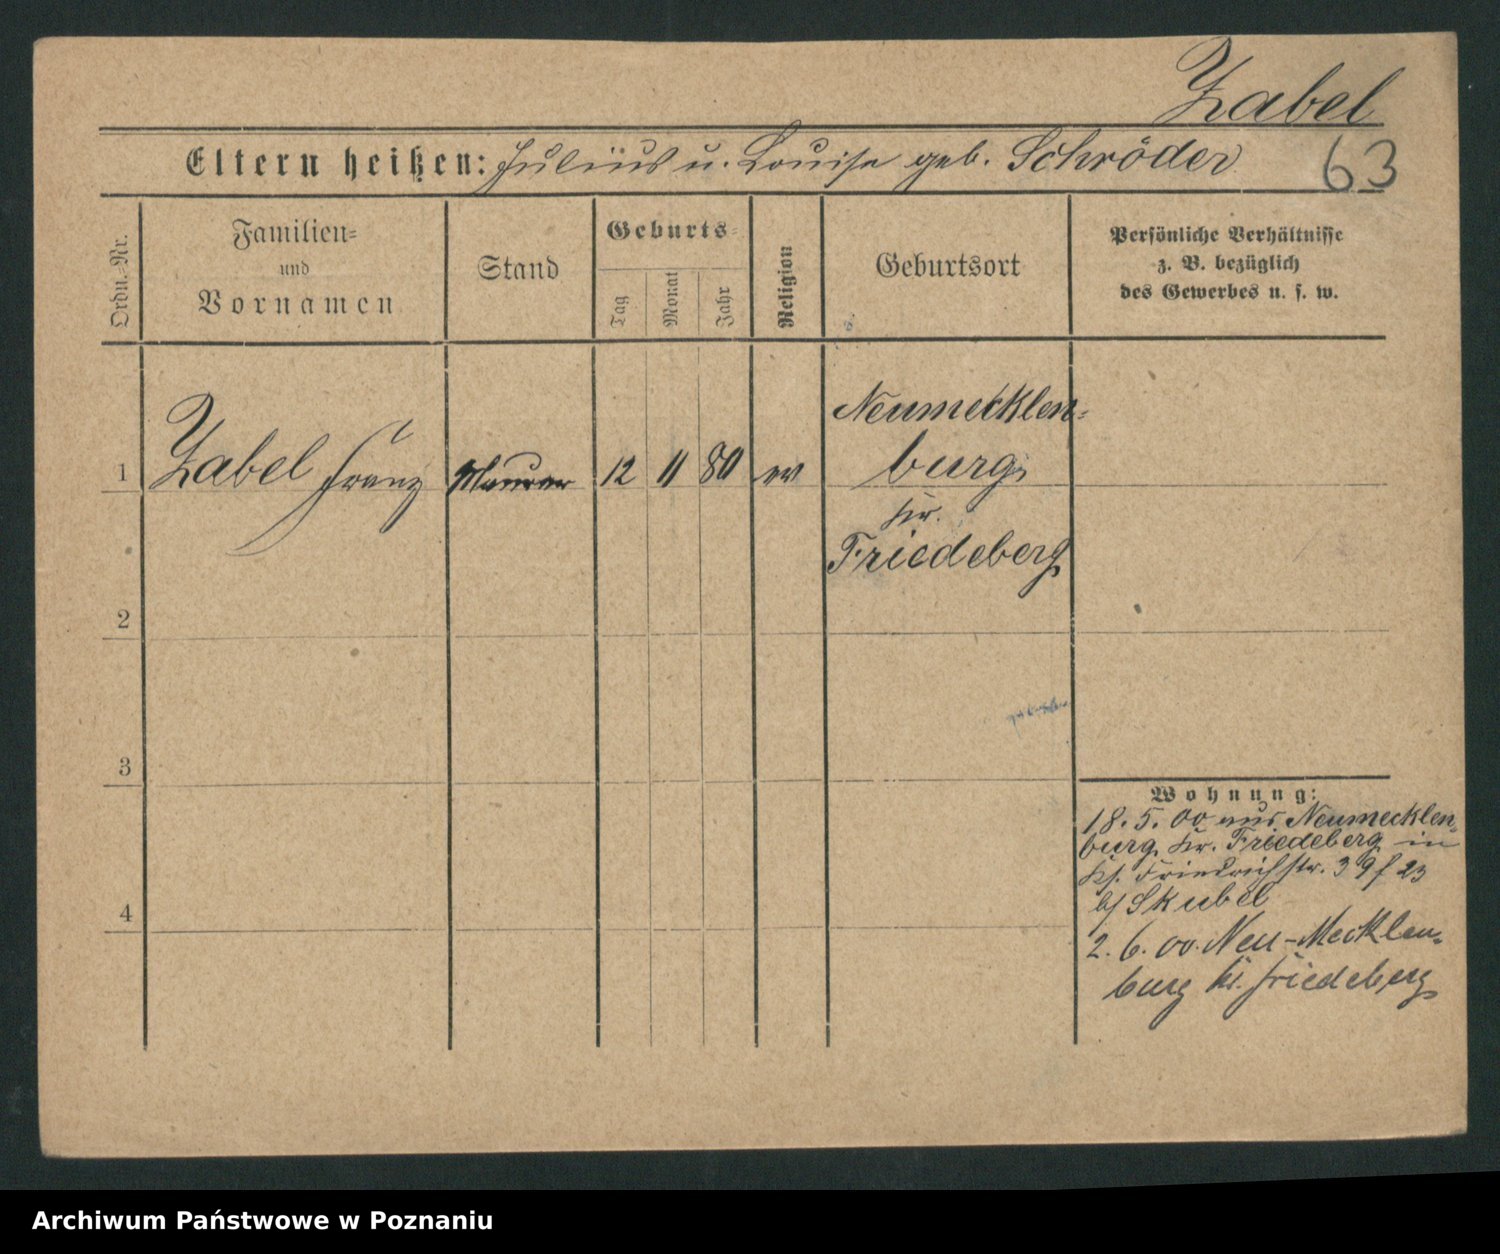 Zabel
Eltern heißen: Julius u. Louise geb. Schröder
63
Ordn.=Nr.
Familien=
und
Vornamen
Stand
Geburts=
Tag
Monat
Jahr
Religion
Geburtsort
Persönliche Verhältnisse
z. B. bezüglich
des Gewerbes u. s. w.
1 Zabel Franz Maurer 12 11 80 ev
Neumecklen-
burg
Kr.
Friedeberg
2
3
4
Wohnung:
18. 5. 00 aus Neumecklen-
burg Kr. Friedeberg in
Friedrichstr. 39 23
b/ Skubel
2. 6. 00. Neu-Mecklen-
burg Kr. Friedeberg
Archiwum Państwowe w Poznaniu